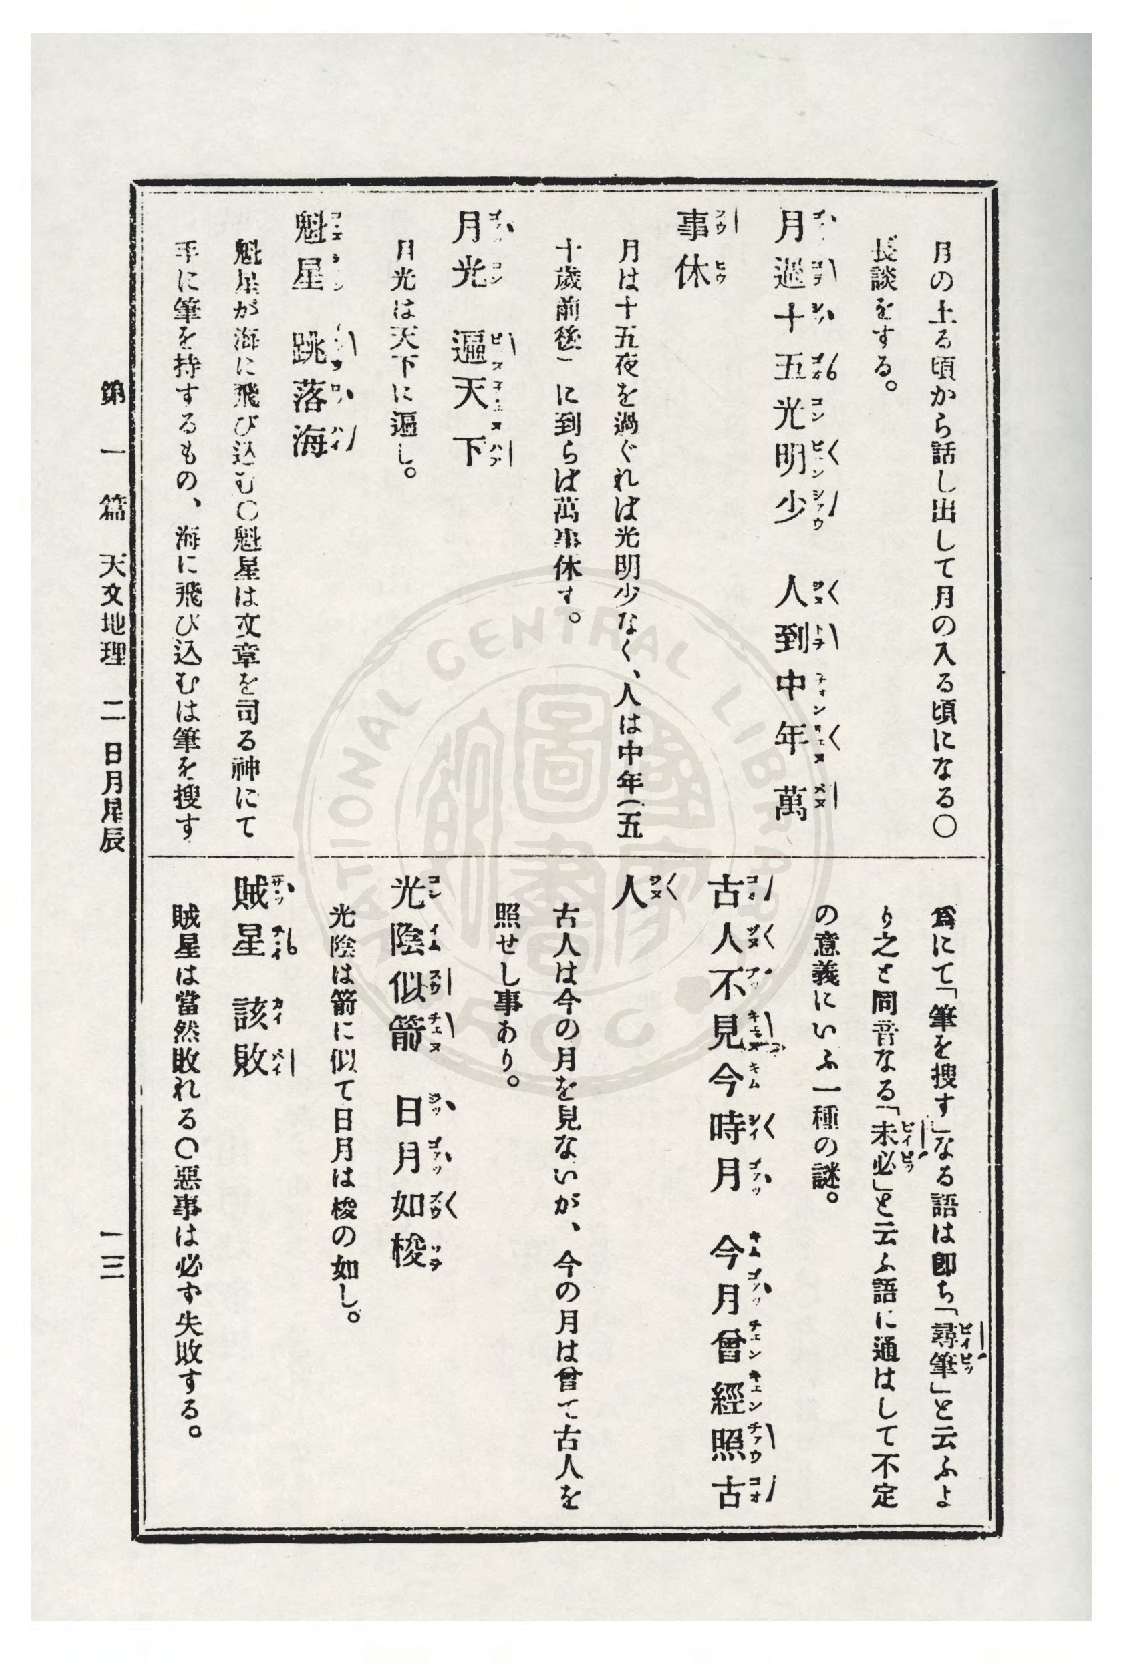 月の上る頃から話し出して月の入る頃になる〇
長談をする。
月過十五光明少 人到中年萬
事休
月は十五夜を過ぐれば光明少なく、人は中年(五
十歲前後)に到らば萬事休す。
月光 遍天下
月光は天下に遍し。
魁星 跳落海
魁星が海に飛び込む〇魁星は文章を司る神にて
手に筆を持するもの、海に飛び込むは筆を搜す
爲にて「筆を搜す」なる語は卽ち「尋筆」と云ふよ
り之と同音なる「未必」と云ふ語に通はして不定
の意義にいふ一種の謎。
古人不見今時月 今月曾經照古
人
古人は今の月を見ないが、今の月は曾て古人を
照せし事あり。
光陰似箭 日月如梭
光陰は箭に似て日月は梭の如し。
賊星 該敗
賊星は當然敗れる〇惡事は必ず失敗する。
第一篇 天文地理 二 日月星辰
一三
NATIONAL CENTRAL LIBRARY